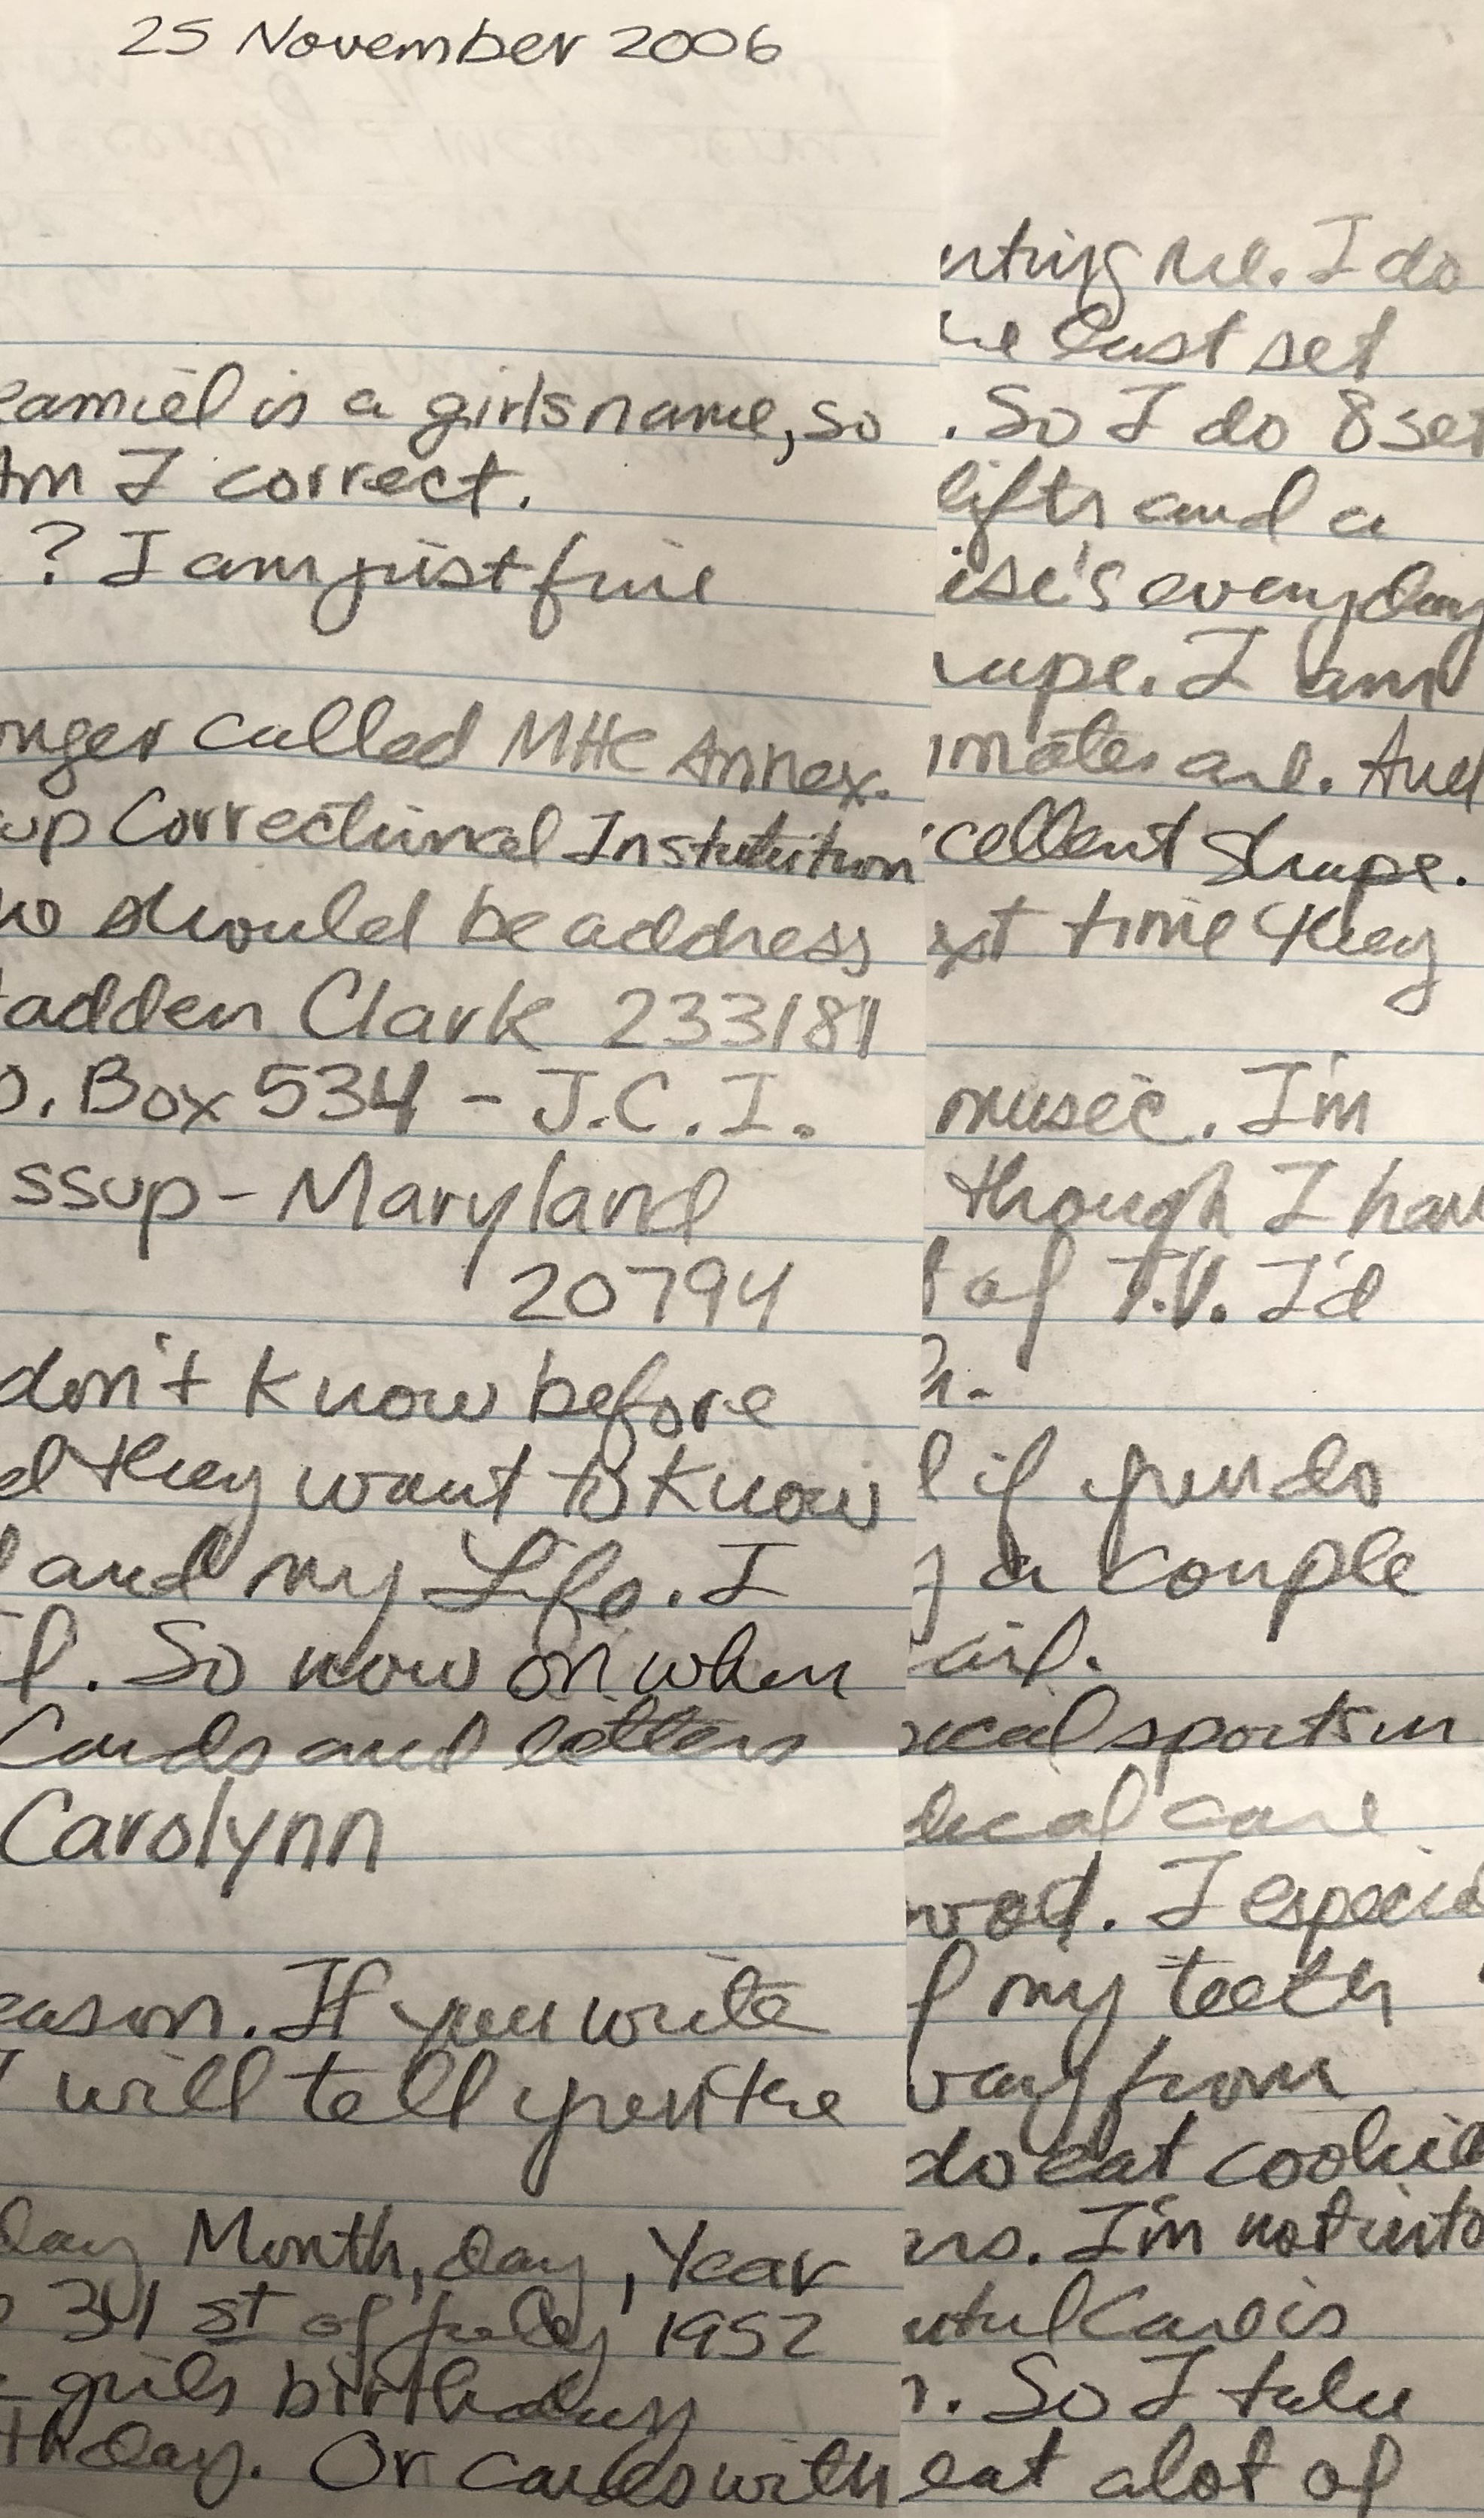 25 November 2006
eamiel is a girls name, so
Am I correct.
? I am just fine
onger called MHC Annex.
up Correctional Institution
ho should be address
adden Clark 233181
O. Box 534 - J.C.I.
ssup - Maryland
20794
don't know before
d they want to know
and my Life. I
f. So now on when
Cards and letters
Carolynn
eason. If you write
I will tell you the
day Month, day, Year
31 st of July 1952
girls birthday
thday. Or cards with
nting me. I do
he last set
. So I do 8 set
lifts and a
ise's everyday
hape. I am
nmates are. And
xcellent shape.
ext time they
music. I'm
though I hav
t of T.V. I'd
h.
l if you do
g a couple
ail.
ocal sports in
dical care
ood. I especia
f my teeth
way from
do eat cookie
ns. I'm not into
ntal Care is
n. So I take
eat alot of